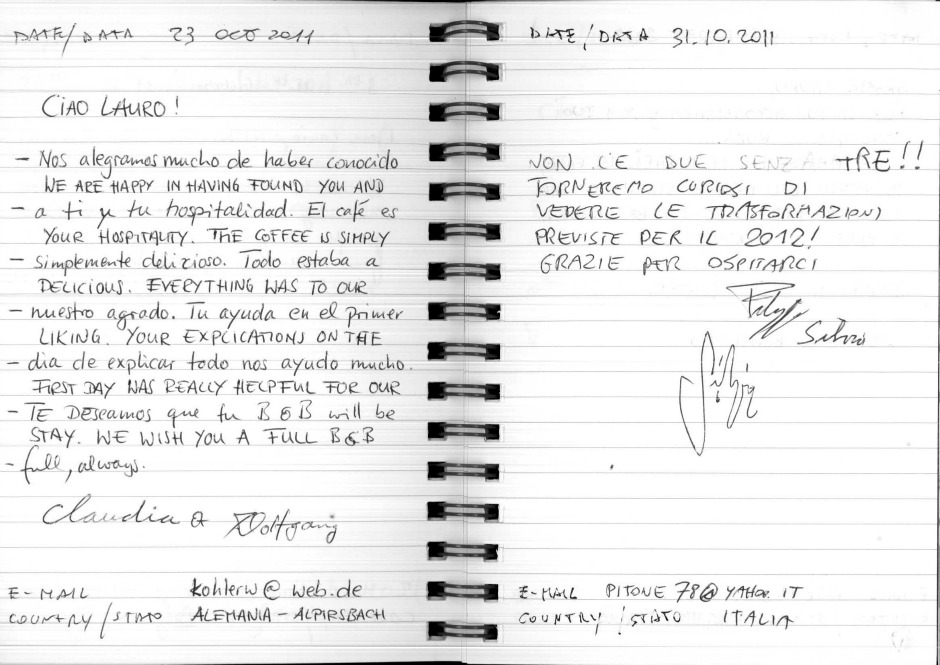 DATE/DATA 23 OCT 2011
CIAO LAURO!
- Nos alegramos mucho de haber conocido
WE ARE HAPPY IN HAVING FOUND YOU AND
- a ti y tu hospitalidad. El café es
YOUR HOSPITALITY. THE COFFEE IS SIMPLY
- simplemente delizioso. Todo estaba a
DELICIOUS. EVERYTHING WAS TO OUR
- nuestro agrado. Tu ayuda en el primer
LIKING. YOUR EXPLICATIONS ON THE
- dia de explicar todo nos ayudo mucho.
FIRST DAY WAS REALLY HELPFUL FOR OUR
- TE DESeamos que tu B&B will be
STAY. WE WISH YOU A FULL B&B
- full, always.
Claudia & Wolfgang
E-MAIL kohlerw@web.de
COUNTRY/STATO ALEMANIA - ALPIRSBACH
DATE/DATA 31.10.2011
NON CE DUE SENZA TRE!!
TORNEREMO CURIOSI DI
VEDERE LE TRASFORMAZIONI
PREVISTE PER IL 2012!
GRAZIE PER OSPITARCI
Silvia
E-MAIL PITONE78@YAHOO.IT
COUNTRY/STATO ITALIA